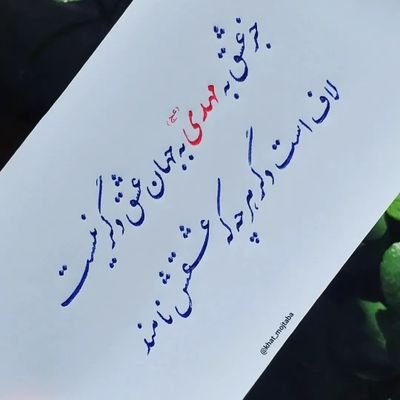 جز عشق به مهدی (عج) به جهان عشق دگر نیست
لاف است دگر هر چه که عشقش نامند
@khat_mojtaba